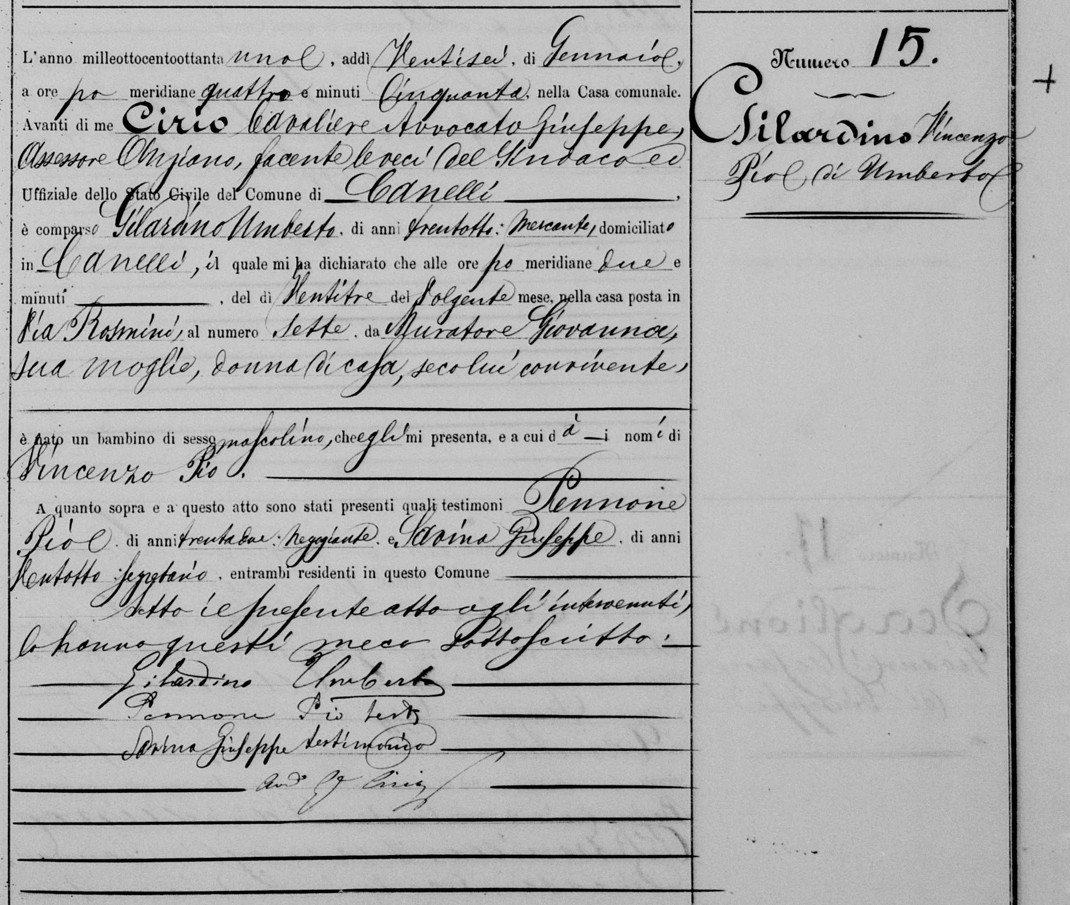 L'anno milleottocentoottanta uno, addì Ventisei, di Gennaio,
a ore po meridiane quattro e minuti Cinquanta, nella Casa comunale.
Avanti di me Cirio Cavaliere Avvocato Giuseppe,
Assessore Anziano, facente le veci del Sindaco ed
Uffiziale dello Stato Civile del Comune di Canelli,
è comparso Gilardino Umberto, di anni trentotto: Mercante, domiciliato
in Canelli, il quale mi ha dichiarato che alle ore po meridiane due e
minuti, del dì Ventitre del Volgente mese, nella casa posta in
Via Rosmini, al numero Sette, da Muratore Giovanna,
sua moglie, donna di casa, seco lui convivente,
è nato un bambino di sesso mascolino, che egli mi presenta, e a cui dà i nomi di
Vincenzo Pio.
A quanto sopra e a questo atto sono stati presenti quali testimoni Pennone
Pio, di anni trentadue: Negoziante, e Savina Giuseppe, di anni
Ventotto: segretario, entrambi residenti in questo Comune
Letto il presente atto agli intervenuti,
lo hanno questi meco sottoscritto:
Gilardino Umberto
Pennone Pio teste
Savina Giuseppe testimonio
Avv.° G Cirio
Numero 15.
Gilardino Vincenzo
Pio di Umberto